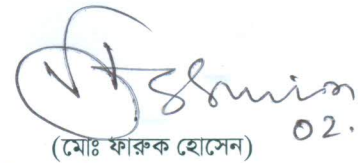 02.
(মোঃ ফারুক হোসেন)